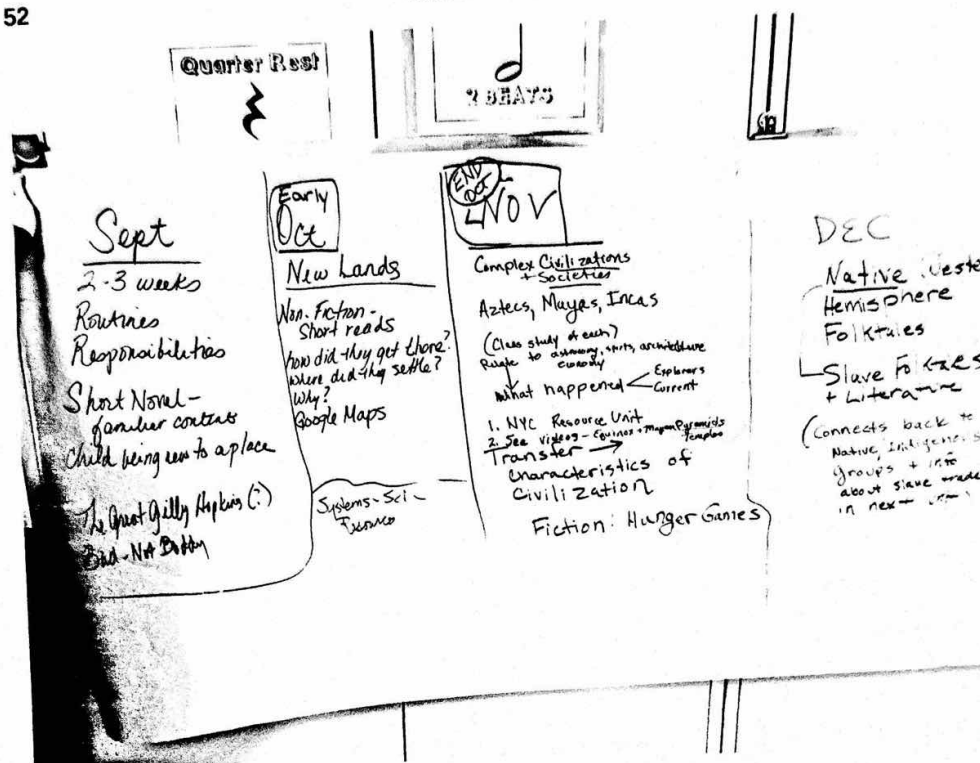 52
Quarter Rest
2 BEATS
Sept
2-3 weeks
Routines
Responsibilities
Short Novel-
familiar contexts
Child being new to a place
The Great Gilly Hopkins (?)
Bud-Not Buddy
Early
Oct
New Lands
Non-Fiction-
Short reads
how did they get there?
where did they settle?
Why?
Google Maps
Systems-Sci-
END
OCT
NOV
Complex Civilizations
+ Societies
Aztecs, Mayas, Incas
(Class study of each)
Relate to astronomy, sports, architecture
economy
What happened
Explorers
Current
1. NYC Resource Unit
2. See videos - Equinox + Mayan Pyramids
Temples
Transfer →
Characteristics of
Civilization
Fiction: Hunger Games
DEC
Native Weste
Hemisphere
Folktales
Slave Folktales
+ Literature
(Connects back to
Native, Indigenous
Groups + info
about slave trade
in next